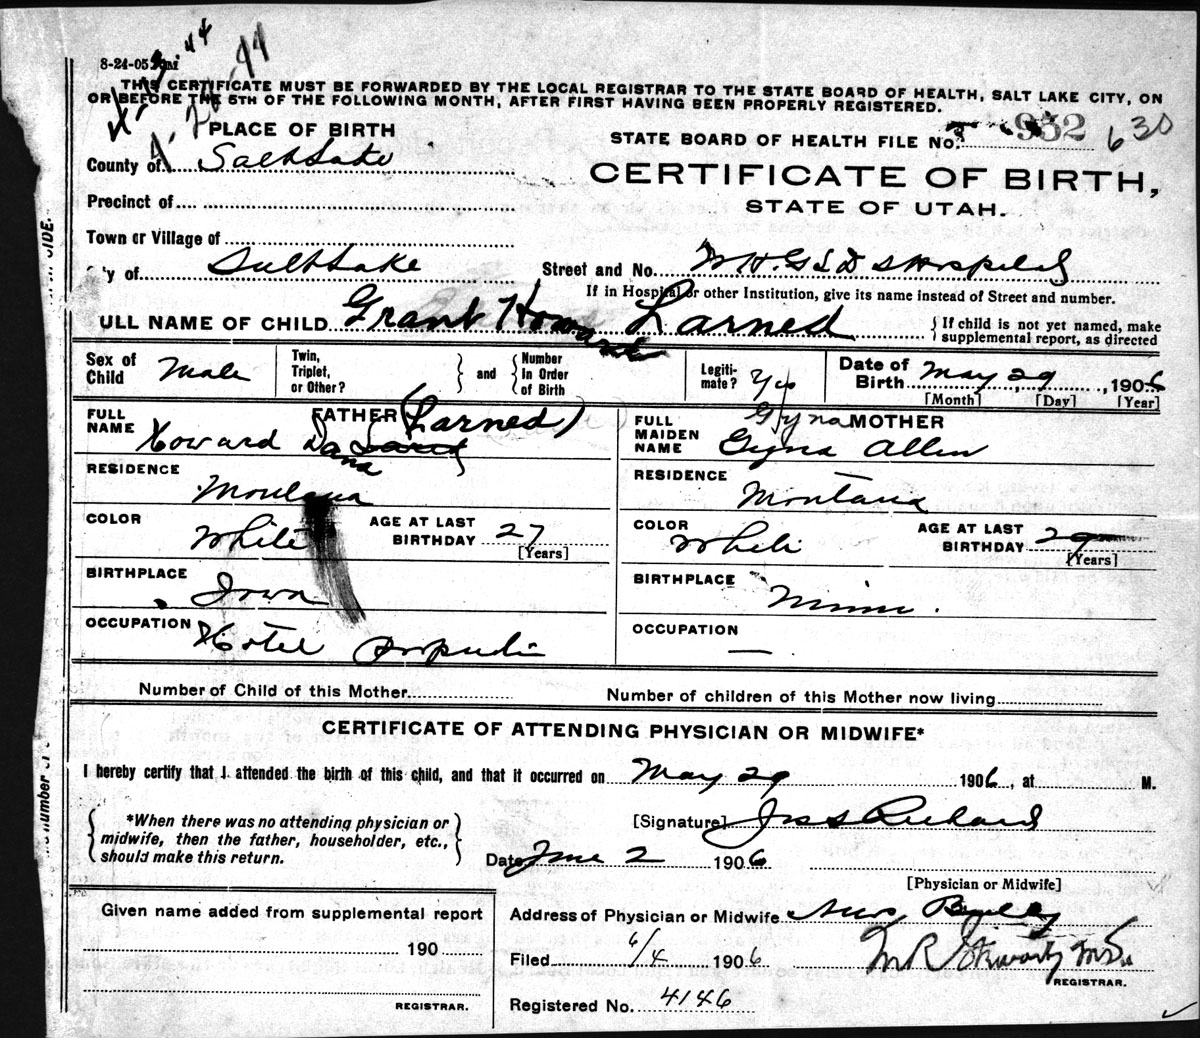 8-24-05
4-24-44
THIS CERTIFICATE MUST BE FORWARDED BY THE LOCAL REGISTRAR TO THE STATE BOARD OF HEALTH, SALT LAKE CITY, ON
OR BEFORE THE 5TH OF THE FOLLOWING MONTH, AFTER FIRST HAVING BEEN PROPERLY REGISTERED.
PLACE OF BIRTH
STATE BOARD OF HEALTH FILE No. 952 630
County of Salt Lake
CERTIFICATE OF BIRTH,
STATE OF UTAH.
Precinct of
Town or Village of
y of Salt Lake
Street and No. W.H. G L D S Hospital
If in Hospital or other Institution, give its name instead of Street and number.
ULL NAME OF CHILD Grant Howard Larned
{If child is not yet named, make
supplemental report, as directed
Sex of Child Male
Twin, Triplet, or Other?
and
Number in Order of Birth
Legiti-mate? Yes
Date of Birth May 29, 1906
[Month] [Day] [Year]
FATHER (Larned)
FULL NAME Howard Dana
Gyna MOTHER
FULL MAIDEN NAME Gyna Allen
RESIDENCE Montana
RESIDENCE Montana
COLOR White
AGE AT LAST BIRTHDAY 27
[Years]
COLOR White
AGE AT LAST BIRTHDAY 29
[Years]
BIRTHPLACE Iowa
BIRTHPLACE Minn.
OCCUPATION Hotel
OCCUPATION —
Number of Child of this Mother
Number of children of this Mother now living
CERTIFICATE OF ATTENDING PHYSICIAN OR MIDWIFE*
I hereby certify that I attended the birth of this child, and that it occurred on May 29 1906, at M.
*When there was no attending physician or
midwife, then the father, householder, etc.,
should make this return.
[Signature] Jos S Richards
Date June 2 1906
[Physician or Midwife]
Given name added from supplemental report
190
REGISTRAR.
Address of Physician or Midwife
Filed 6/4 1906
REGISTRAR.
Registered No. 4146